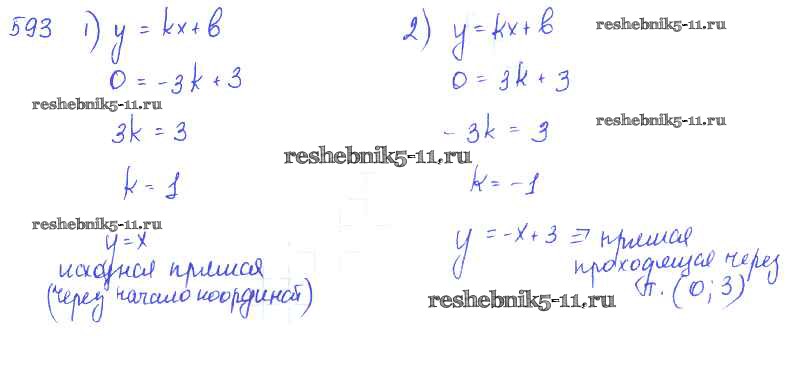 593 1) y = kx + b
0 = -3k + 3
3k = 3
k = 1
y = x
искомая прямая
(через начало координат)
2) y = kx + b
0 = 3k + 3
-3k = 3
k = -1
y = -x + 3 => прямая
проходящая через
т. (0; 3)
reshebnik5-11.ru
reshebnik5-11.ru
reshebnik5-11.ru
reshebnik5-11.ru
reshebnik5-11.ru
reshebnik5-11.ru